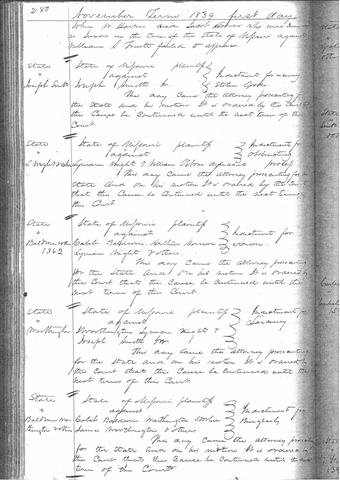 280
November Term 1839 first day
John W
as Jurors in the Case of the State of Missouri against
William S failed to appear
State State of Missouri plaintiff
" against Indictment for receiving
Joseph Smith Joseph Smith Jr. Stolen Goods
This day Came the Attorney prosecuting for
the State and on his motion It is ordered by the Court
this Cause be Continued until the next term of the
Court
State State of Missouri plaintiff Indictment for
" against obstructing
Lyman Wight & William Osborn defendants process
This day Came the Attorney prosecuting for the
State And on his motion It is ordered by the Court
that this Cause be Continued until the next term of
the Court
State State of Missouri plaintiff
" against Indictment for
Baldwin & others Caleb Baldwin
1362 Lyman Wight & others
This day Came the Attorney prosecuting
for the State And on his motion It is ordered by
the Court that this Cause be Continued until the
next term of this Court
State State of Missouri plaintiff Indictment for
" against Larceny
Worthington Worthington Lyman Wight &
Joseph Smith Jr
This day Came the Attorney prosecuting
for the State and on his motion It is ordered by
the Court that this Cause be Continued until the
next term of this Court
State State of Missouri plaintiff
" against Indictment for
Caleb Baldwin Burglary
James Worthington & others
This day Came the Attorney prosecuting
for the State and on his motion It is ordered by
the Court that this Cause be Continued until the next
term of this Court